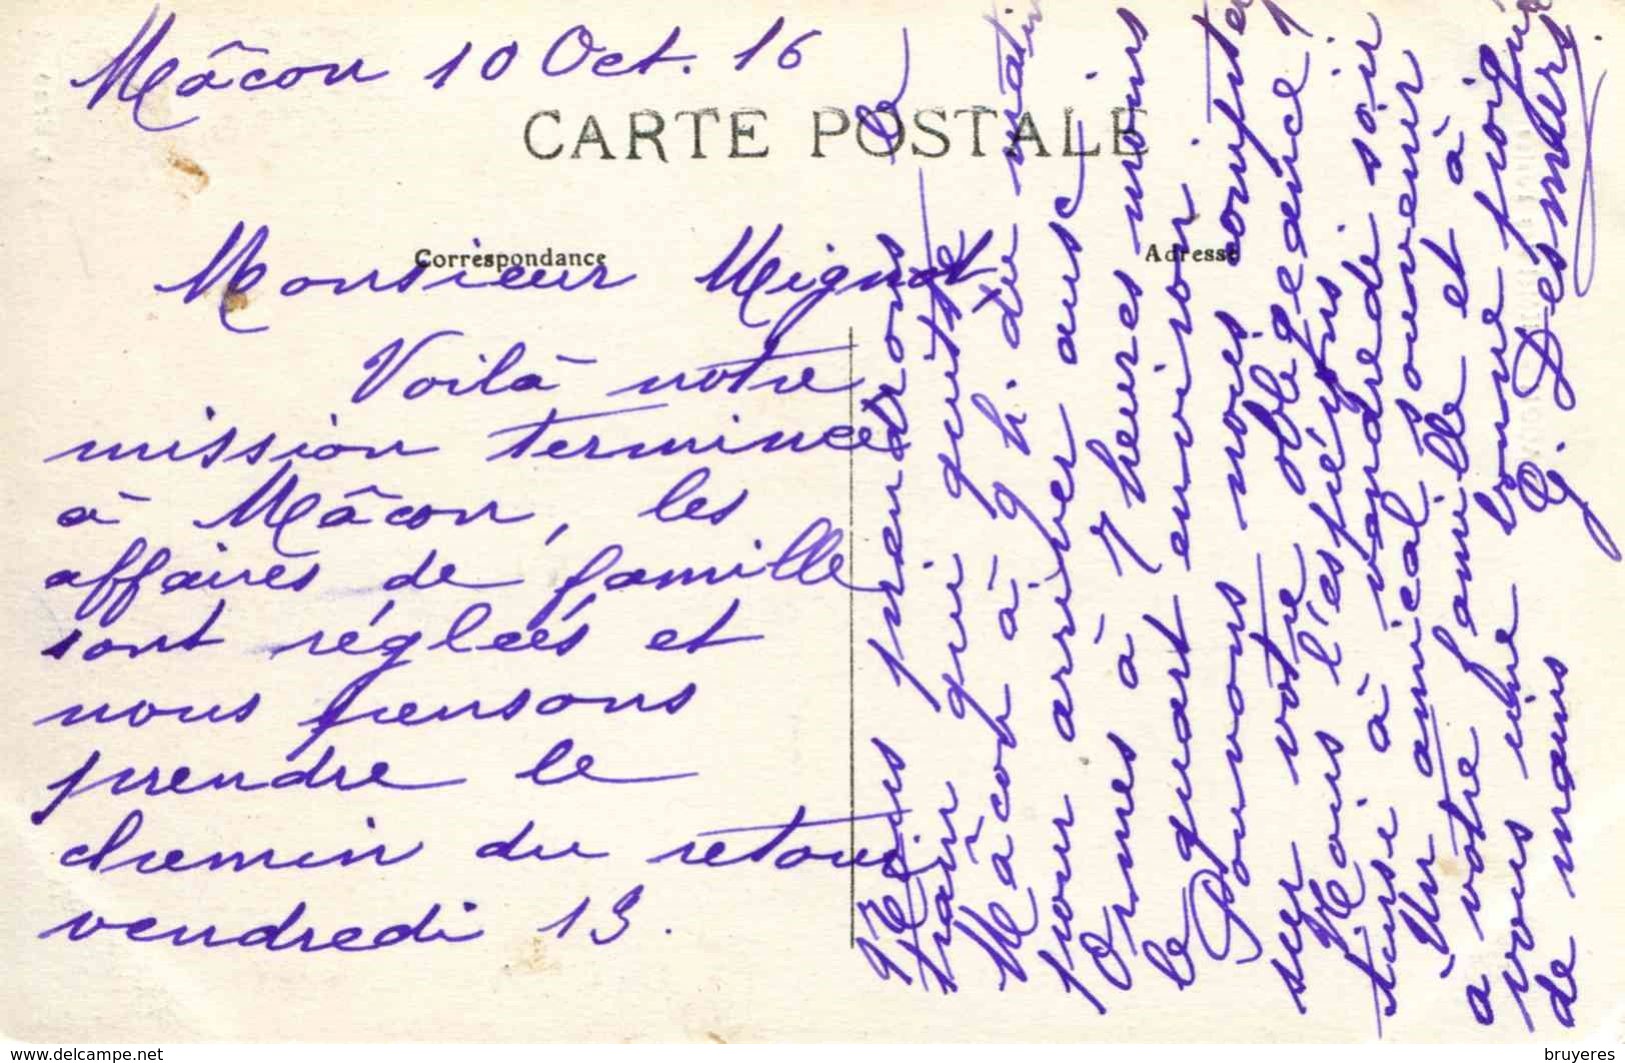 Mâcon 10 Oct. 16
CARTE POSTALE
Correspondance
Adresse
Monsieur Mignot,
Voilà notre
mission terminée
à Mâcon, les
affaires de famille
sont réglées et
nous pensons
prendre le
chemin du retour
vendredi 13.
Nous prendrons le
train qui quitte
Mâcon à 9 h. du matin
pour arriver aux
Ormes à 7 heures moins
le quart environ
Pouvons nous compter
sur votre obligeance ?
Nous l'espérons
à vendredi soir
Un amical souvenir
à votre famille et à
vous une bonne poignée
de mains
G. Desmders
www.delcampe.net
bruyeres